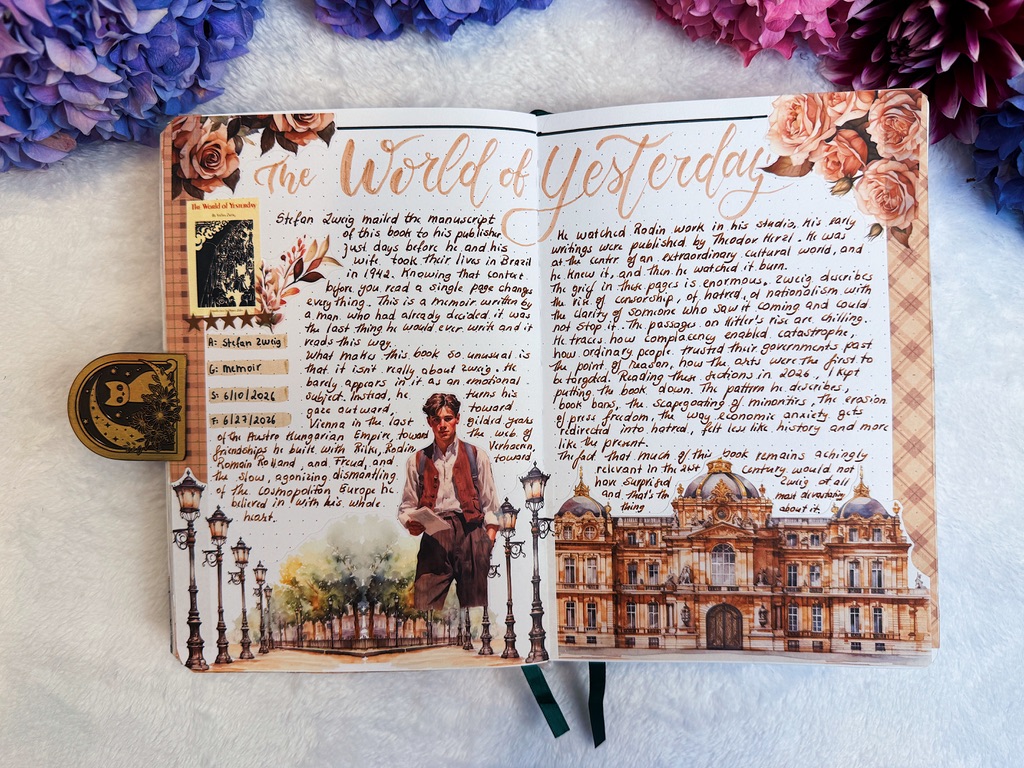 The World of Yesterday
The World of Yesterday
By Stefan Zweig
A: Stefan Zweig
G: memoir
S: 6/10/2026
F: 6/27/2026
Stefan Zweig mailed the manuscript
of this book to his publisher
just days before he and his
wife took their lives in Brazil
in 1942. Knowing that context
before you read a single page changes
everything. This is a memoir written by
a man who had already decided it was
the last thing he would ever write and it
reads this way.
What makes this book so unusual is
that it isn't really about Zweig. He
barely appears in it as an emotional
subject. Instead, he turns his
gaze outward, toward
Vienna in the last gilded years
of the Austro Hungarian Empire, toward the web of
friendships he built with Rilke, Rodin, Verhaeren,
Romain Rolland, and Freud, and toward
the slow, agonizing dismantling
of the cosmopolitan Europe he
believed in with his whole
heart.
He watched Rodin work in his studio, his early
writings were published by Theodor Herzl. He was
at the centr of an extraordinary cultural world, and
he knew it, and then he watched it burn.
The grief in these pages is enormous. Zweig describes
the rise of censorship, of hatred, of nationalism with
the clarity of someone who saw it coming and could
not stop it. The passages on Hitler's rise are chilling.
He traces how complacency enabled catastrophe,
how ordinary people trusted their governments past
the point of reason, how the arts were the first to
be targeted. Reading these sections in 2026, I kept
putting the book down. The pattern he describes,
book bans, the scapegoating of minorities, the erosion
of press freedom, the way economic anxiety gets
redirected into hatred, felt less like history and more
like the present.
The fact that much of this book remains achingly
relevant in the 21st century would not
have surprised Zweig at all
and that's the most devastating
thing about it.